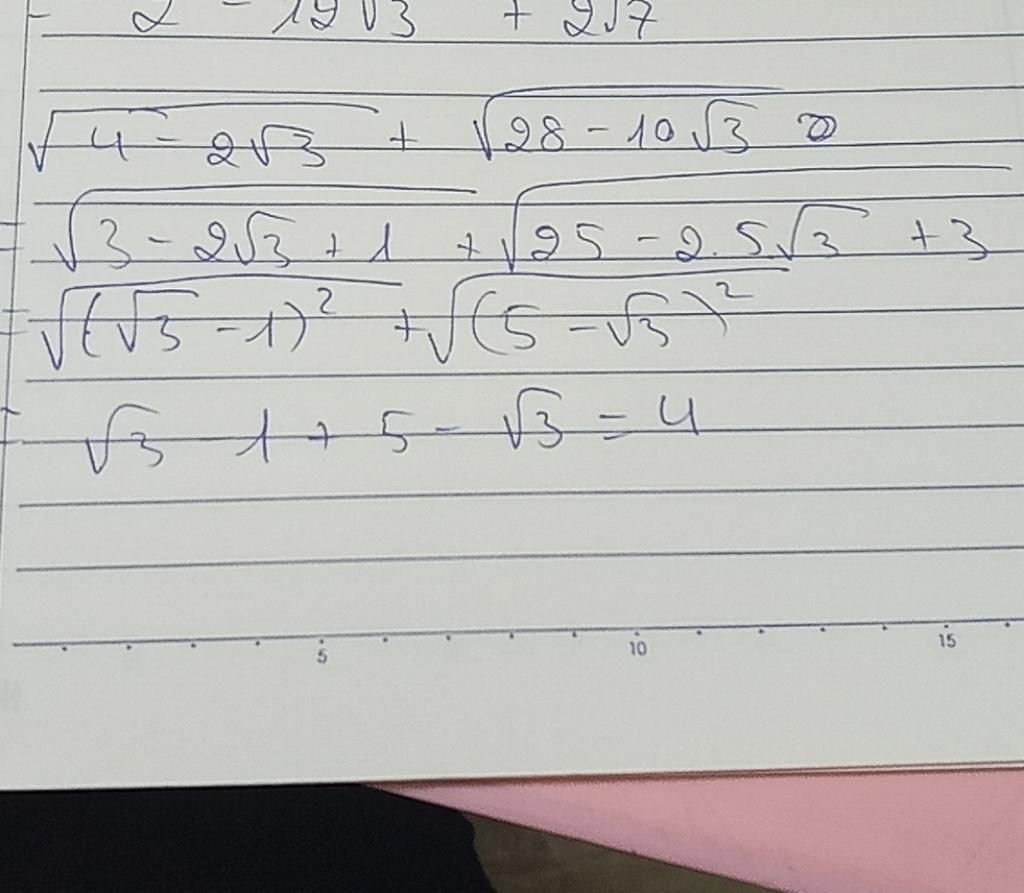 2 - 12√3 + 2√7
√(4 - 2√3) + √(28 - 10√3)
= √(3 - 2√3 + 1) + √(25 - 2.5√3 + 3)
= √((√3 - 1)²) + √((5 - √3)²)
= √3 - 1 + 5 - √3 = 4
5 10 15